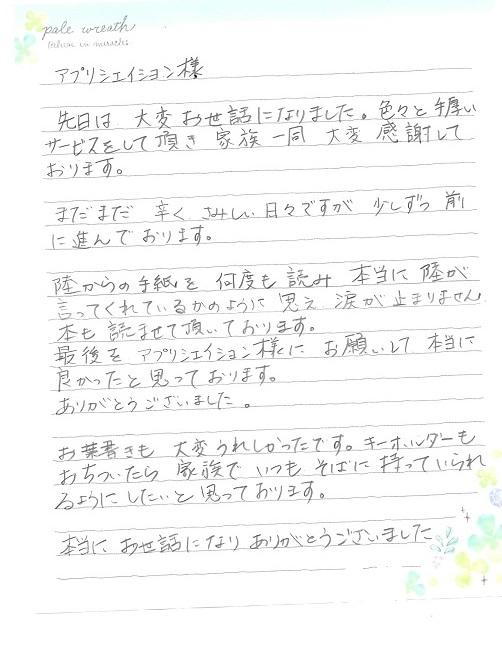 pale wreath
believe in miracles
アプリシエイション様
先日は 大変 お世話になりました。色々と手厚い
サービスをして頂き 家族 一同 大変 感謝して
おります。
まだまだ 辛く さみしい 日々ですが 少しずつ 前
に進んでおります。
陸からの手紙を 何度も 読み 本当に 陸が
言ってくれているかのように 思え 涙が 止まりません
本も 読ませて頂いております。
最後を アプリシエイション様に お願いして 本当に
良かったと思っております。
ありがとうございました。
お葉書きも 大変うれしかったです。キーホルダーも
おちついたら 家族で いつも そばに 持っていられ
るようにしたいと思っております。
本当に お世話になり ありがとうございました